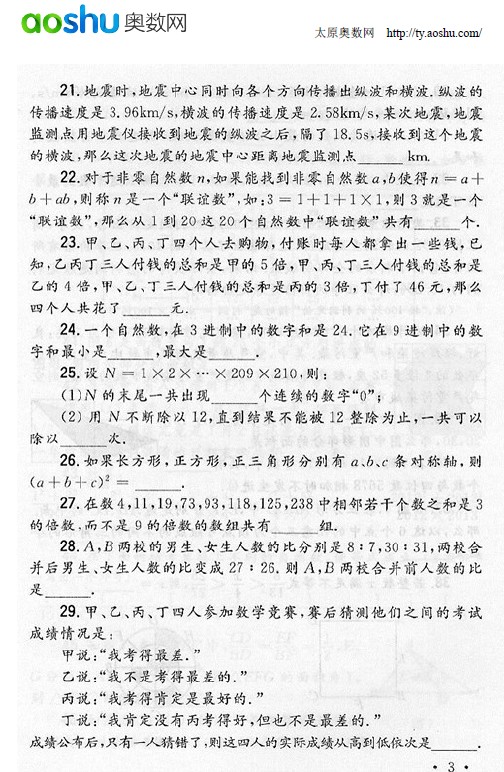 aoshu 奥数网
太原奥数网 http://ty.aoshu.com/
21.地震时,地震中心同时向各个方向传播出纵波和横波.纵波的
传播速度是3.96km/s,横波的传播速度是2.58km/s,某次地震,地震
监测点用地震仪接收到地震的纵波之后,隔了18.5s,接收到这个地震
的横波,那么这次地震的地震中心距离地震监测点______km.
22.对于非零自然数n,如果能找到非零自然数a,b使得n=a+
b+ab,则称n是一个“联谊数”,如:3=1+1+1×1,则3就是一个
“联谊数”,那么从1到20这20个自然数中“联谊数”共有______个.
23.甲、乙、丙、丁四个人去购物,付账时每人都拿出一些钱,已
知,乙丙丁三人付钱的总和是甲的5倍,甲、丙、丁三人付钱的总和是
乙的4倍,甲、乙、丁三人付钱的总和是丙的3倍,丁付了46元,那么
四个人共花了______元.
24.一个自然数,在3进制中的数字和是24.它在9进制中的数
字和最小是______,最大是______.
25.设N=1×2×…×209×210,则:
(1)N的末尾一共出现______个连续的数字“0”;
(2)用N不断除以12,直到结果不能被12整除为止,一共可以
除以______次.
26.如果长方形,正方形,正三角形分别有a、b、c条对称轴,则
(a+b+c)²=______.
27.在数4,11,19,73,93,118,125,238中相邻若干个数之和是3
的倍数,而不是9的倍数的数组共有______组.
28.A,B两校的男生、女生人数的比分别是8:7,30:31,两校合
并后男生、女生人数的比变成27:26.则A,B两校合并前人数的比
是______.
29.甲、乙、丙、丁四人参加数学竞赛,赛后猜测他们之间的考试
成绩情况是:
甲说:“我考得最差.”
乙说:“我不是考得最差的.”
丙说:“我考得肯定是最好的.”
丁说:“我肯定没有丙考得好,但也不是最差的.”
成绩公布后,只有一人猜错了,则这四人的实际成绩从高到低依次是______.
• 3 •